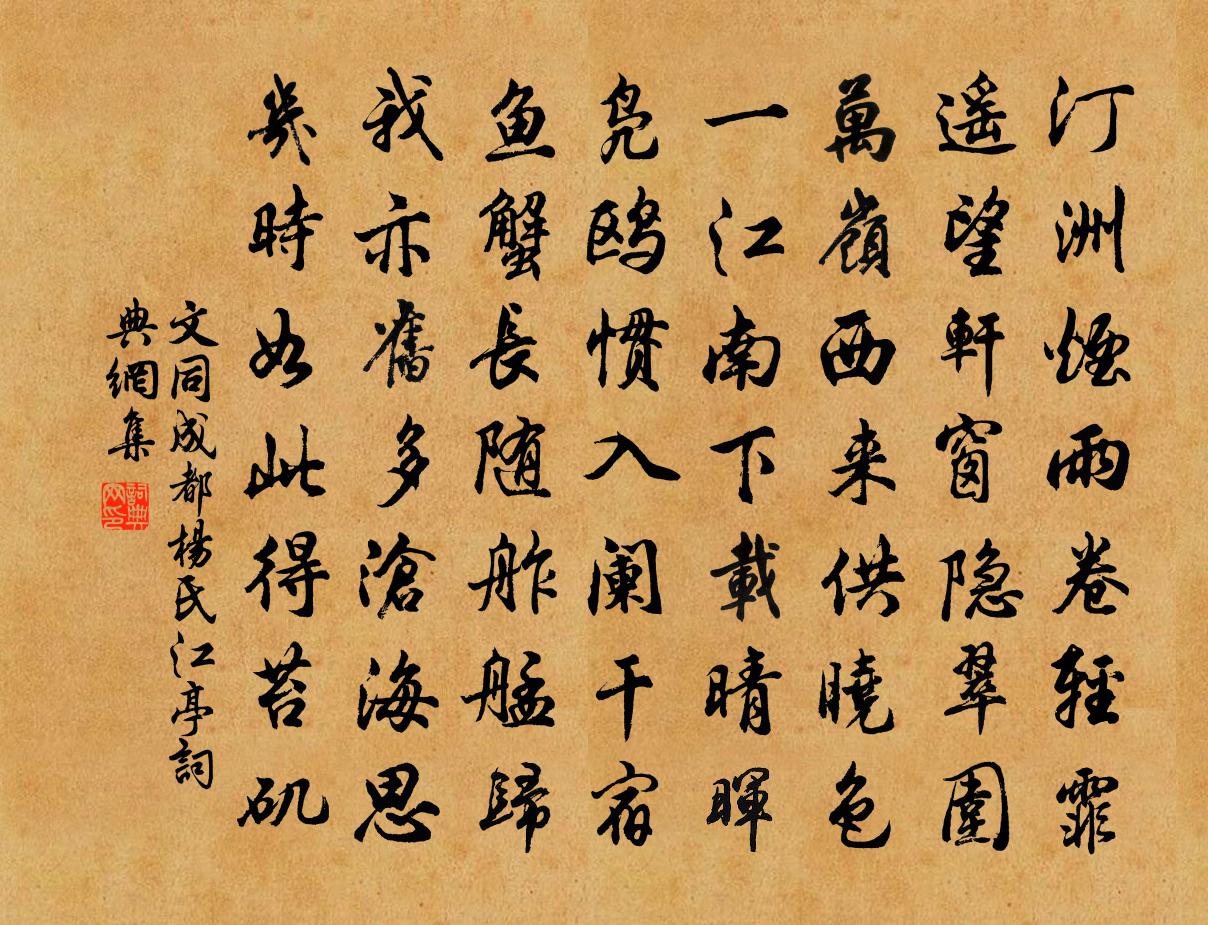 汀洲煙雨卷輕霏
遥望軒窗隐翠圍
萬嶺西来供曉色
一江南下載晴暉
凫鸥慣入阑干宿
魚蟹長随舴艋歸
我亦舊多滄海思
幾時如此得苔矶
文同成都楊氏江亭詞
典網集
詞典
网印